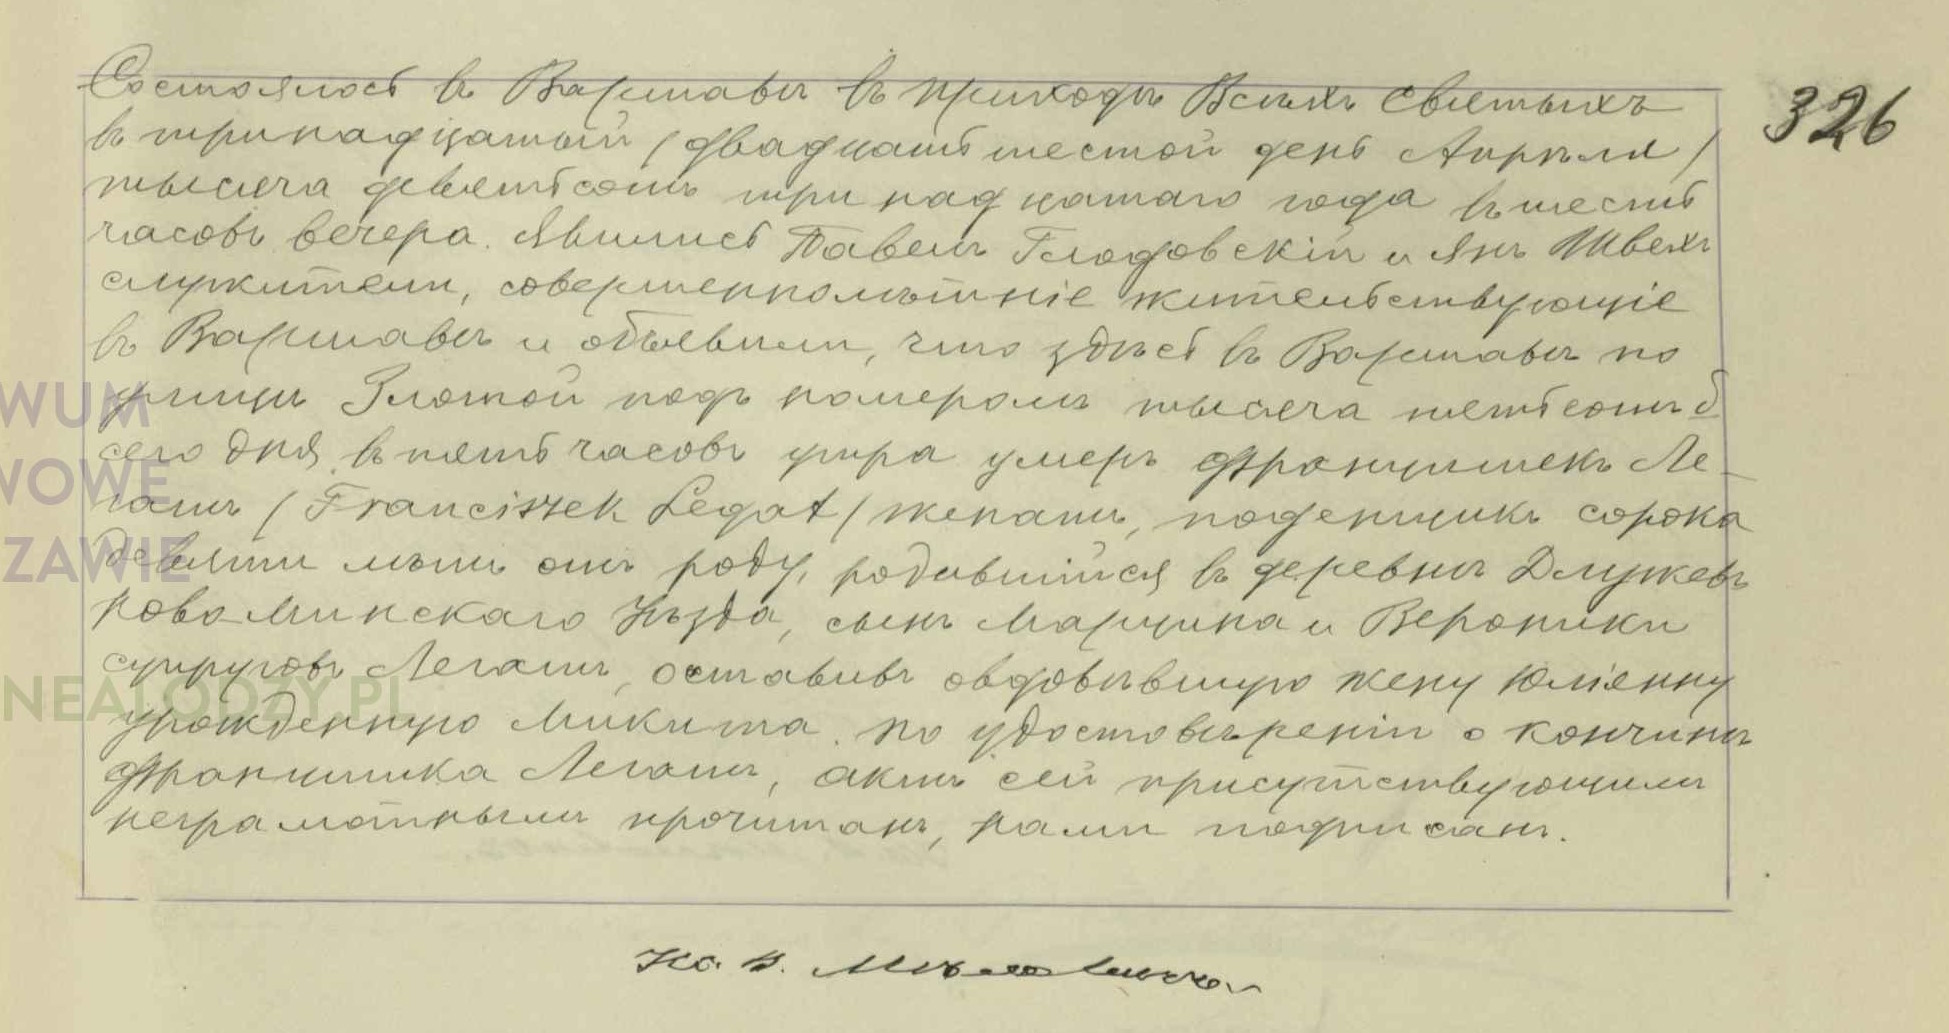 326
Состоялось въ Варшавѣ въ приходѣ Всѣхъ Святыхъ
въ тринадцатый /двадцать шестой день Апрѣля/
тысяча девятьсотъ тринадцатаго года въ шесть
часовъ вечера. Явились Павелъ Глодовскій и Янъ Швехъ
служители, совершеннолѣтніе жительствующіе
въ Варшавѣ и объявили, что здѣсь въ Варшавѣ по
улицѣ Злотой подъ номеромъ тысяча пятьсотъ б
сего дня въ пять часовъ утра умеръ Францишекъ Ле-
гатъ /Franciszek Legat/ женатъ, поденщикъ сорока
девяти лѣтъ отъ роду, родившійся въ деревнѣ Длужевъ
Ново-Минскаго Уѣзда, сынъ Марцина и Вероники
супруговъ Легатъ, оставивъ овдовѣвшую жену Юліанну
урожденную Микита. По удостовѣреніи о кончинѣ
Францишка Легатъ, актъ сей присутствующимъ
неграмотнымъ прочитанъ, нами подписанъ.
WUM
WOWE
ZAWIE
NEALODZY.PL